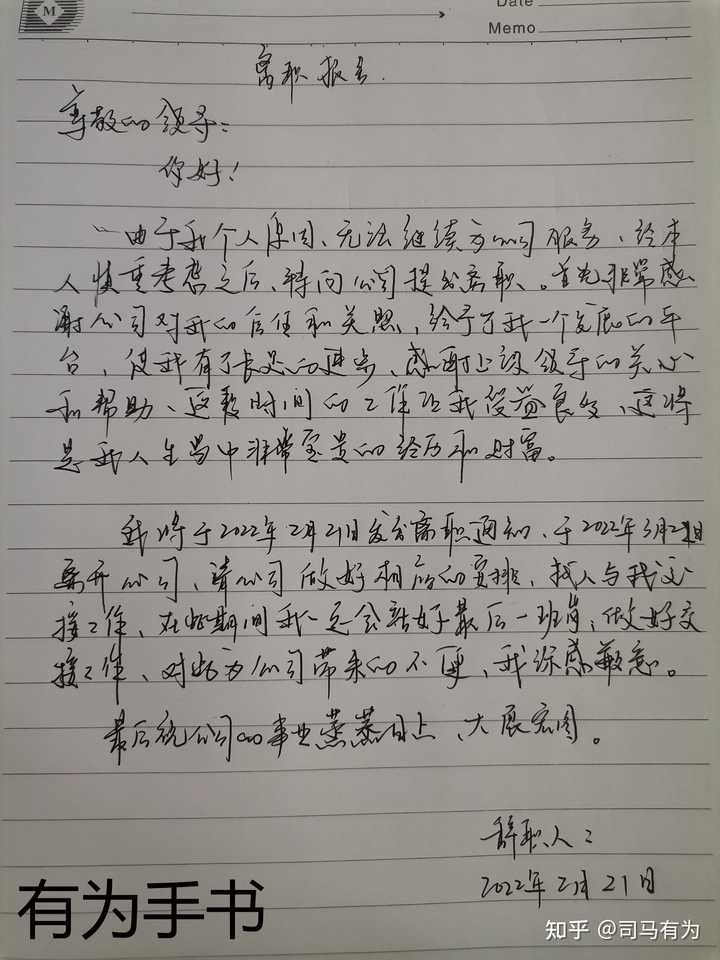 M
Date
Memo
离职报告.
尊敬的领导:
你好!
由于我个人原因、无法继续为公司服务、经本
人慎重考虑之后、特向公司提出离职。首先非常感
谢公司对我的信任和关照、给予了我一个发展的平
台,使我有了长足的进步、感谢上级领导的关心
和帮助、这段时间的工作让我受益良多、这将
是我人生当中非常宝贵的经历和财富。
我将于2022年2月21日发出离职通知、于2022年3月21日
离开公司,请公司做好相应的安排,找人与我交
接工作、在此期间我一定会站好最后一班岗,做好交
接工作、对此为公司带来的不便、我深感歉意。
最后祝公司的事业蒸蒸日上、大展宏图。
辞职人:
2022年2月21日
有为手书
知乎 @司马有为